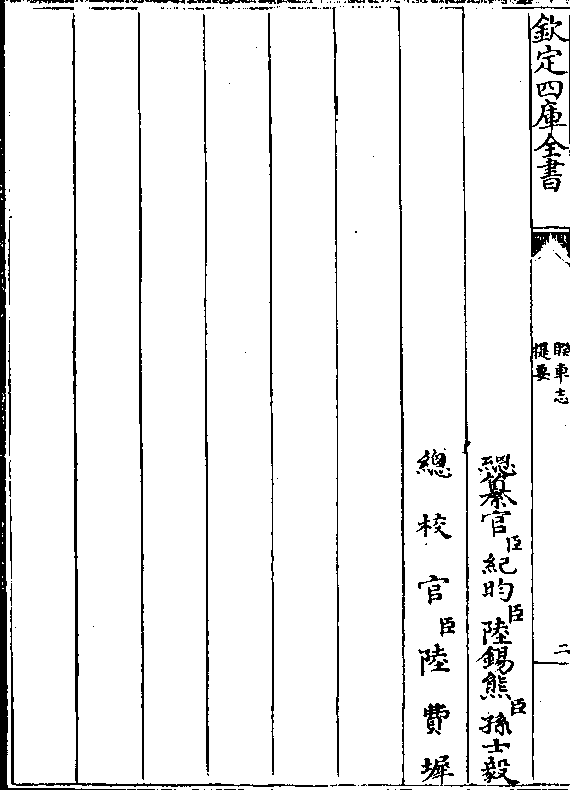 欽定四庫全書
睽車志
提要
二
總纂官臣紀昀臣陸錫熊臣孫士毅
總校官臣陸費墀